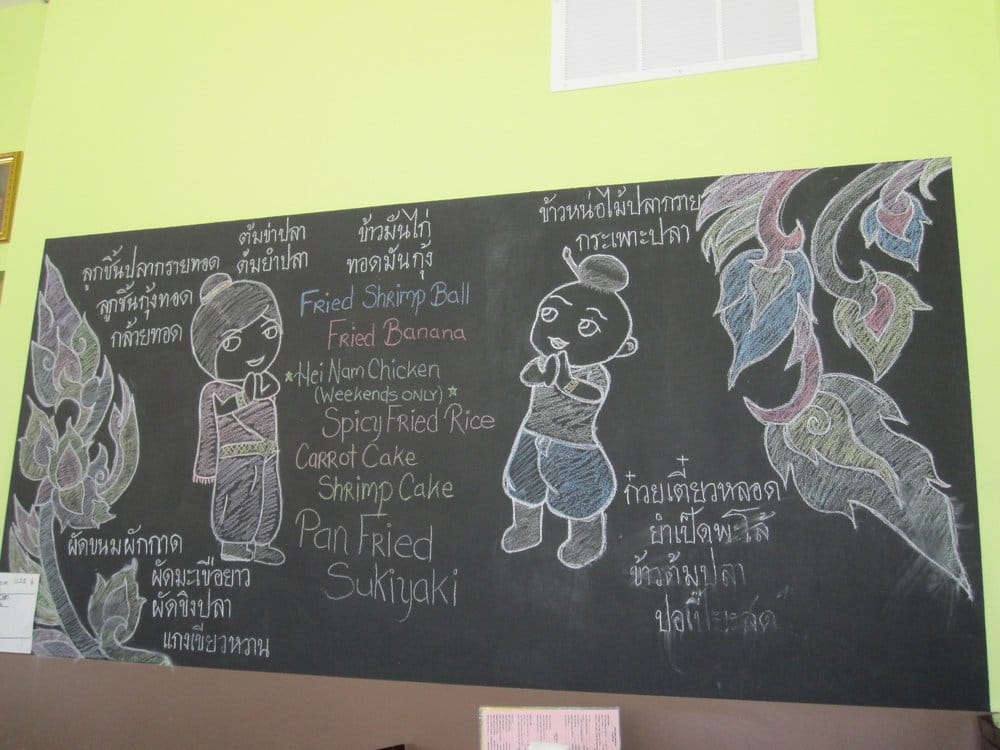 ลูกชิ้นปลากรายทอด
ลูกชิ้นกุ้งทอด
กล้วยทอด
ต้มข่าปลา
ต้มยำปลา
ข้าวมันไก่
ทอดมันกุ้ง
Fried Shrimp Ball
Fried Banana
Hei Nam Chicken
(Weekends only)
Spicy Fried Rice
Carrot Cake
Shrimp Cake
Pan Fried
Sukiyaki
ข้าวหน่อไม้ปลากราย
กระเพาะปลา
ผัดขนมผักกาด
ผัดมะเขือยาว
ผัดขิงปลา
แกงเขียวหวาน
ก๋วยเตี๋ยวหลอด
ยำเป็ดพะโล้
ข้าวต้มปลา
ปอเปี๊ยะสด